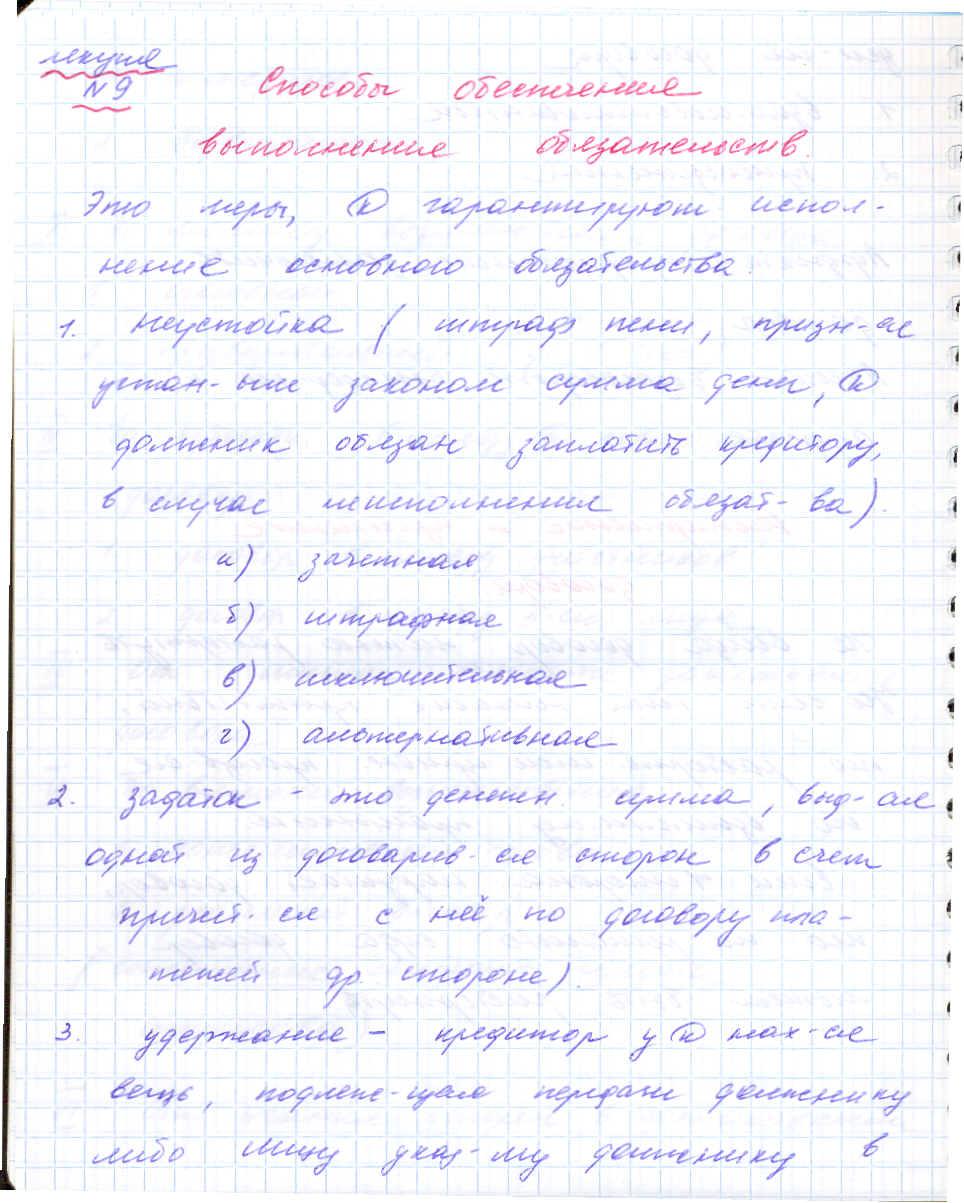 лекция
№9
Способы обеспечения
выполнение обязательств.
Это меры, ⓚ гарантируют испол-
нение основного обязательства.
1. Неустойка ( штраф пени, призн-ся
устан-ые законом сумма денег, ⓚ
должник обязан заплатить кредитору,
в случае неисполнения обязат-ва).
а) зачетная
б) штрафная
в) исключительная
г) альтернативная
2. Задаток - это денежн. сумма, выд-ая
одной из договарив-ся сторон в счет
причит-ся с неё по договору пла-
тежей др. стороне).
3. удержание - кредитор у ⓚ нах-ся
вещь, подлеж-щая передачи должнику
либо лицу указ-му должнику в